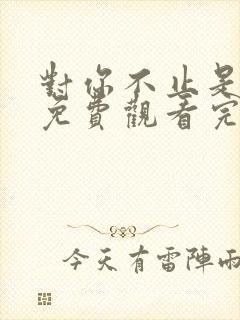 對你不止是
免費觀看完
今天有雷陣雨